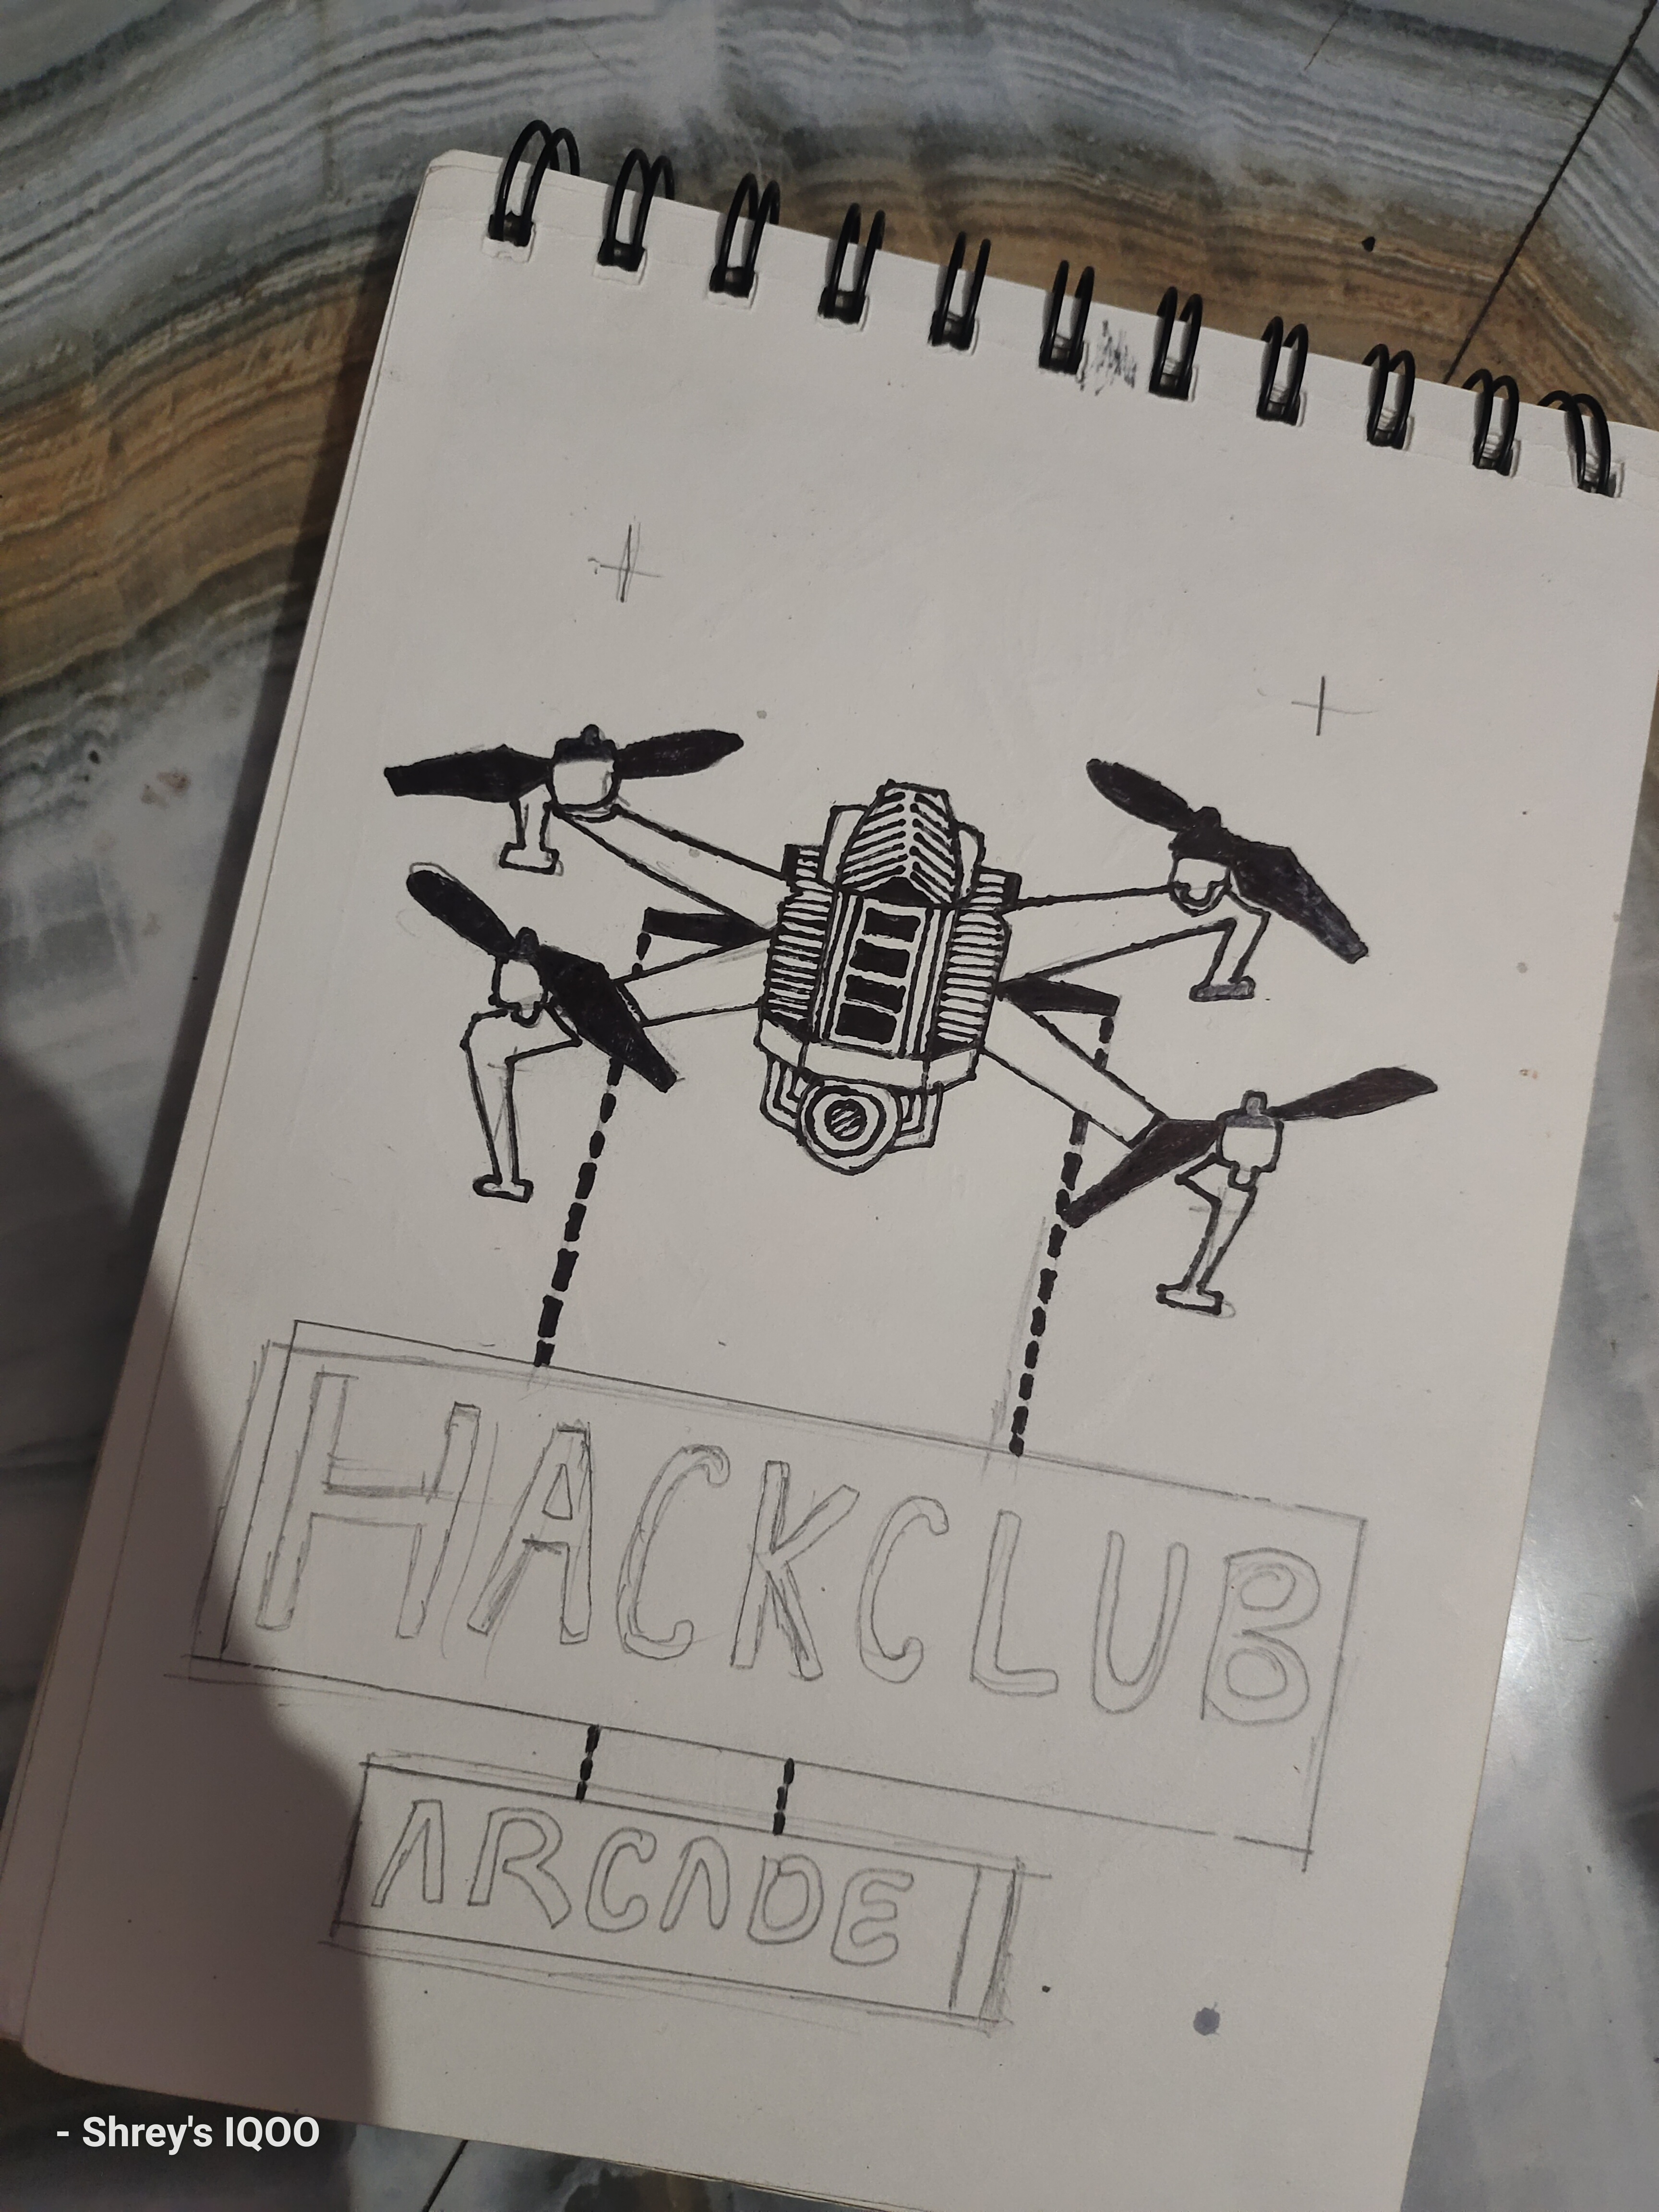 HACKCLUB
ARCADE
- Shrey's IQOO